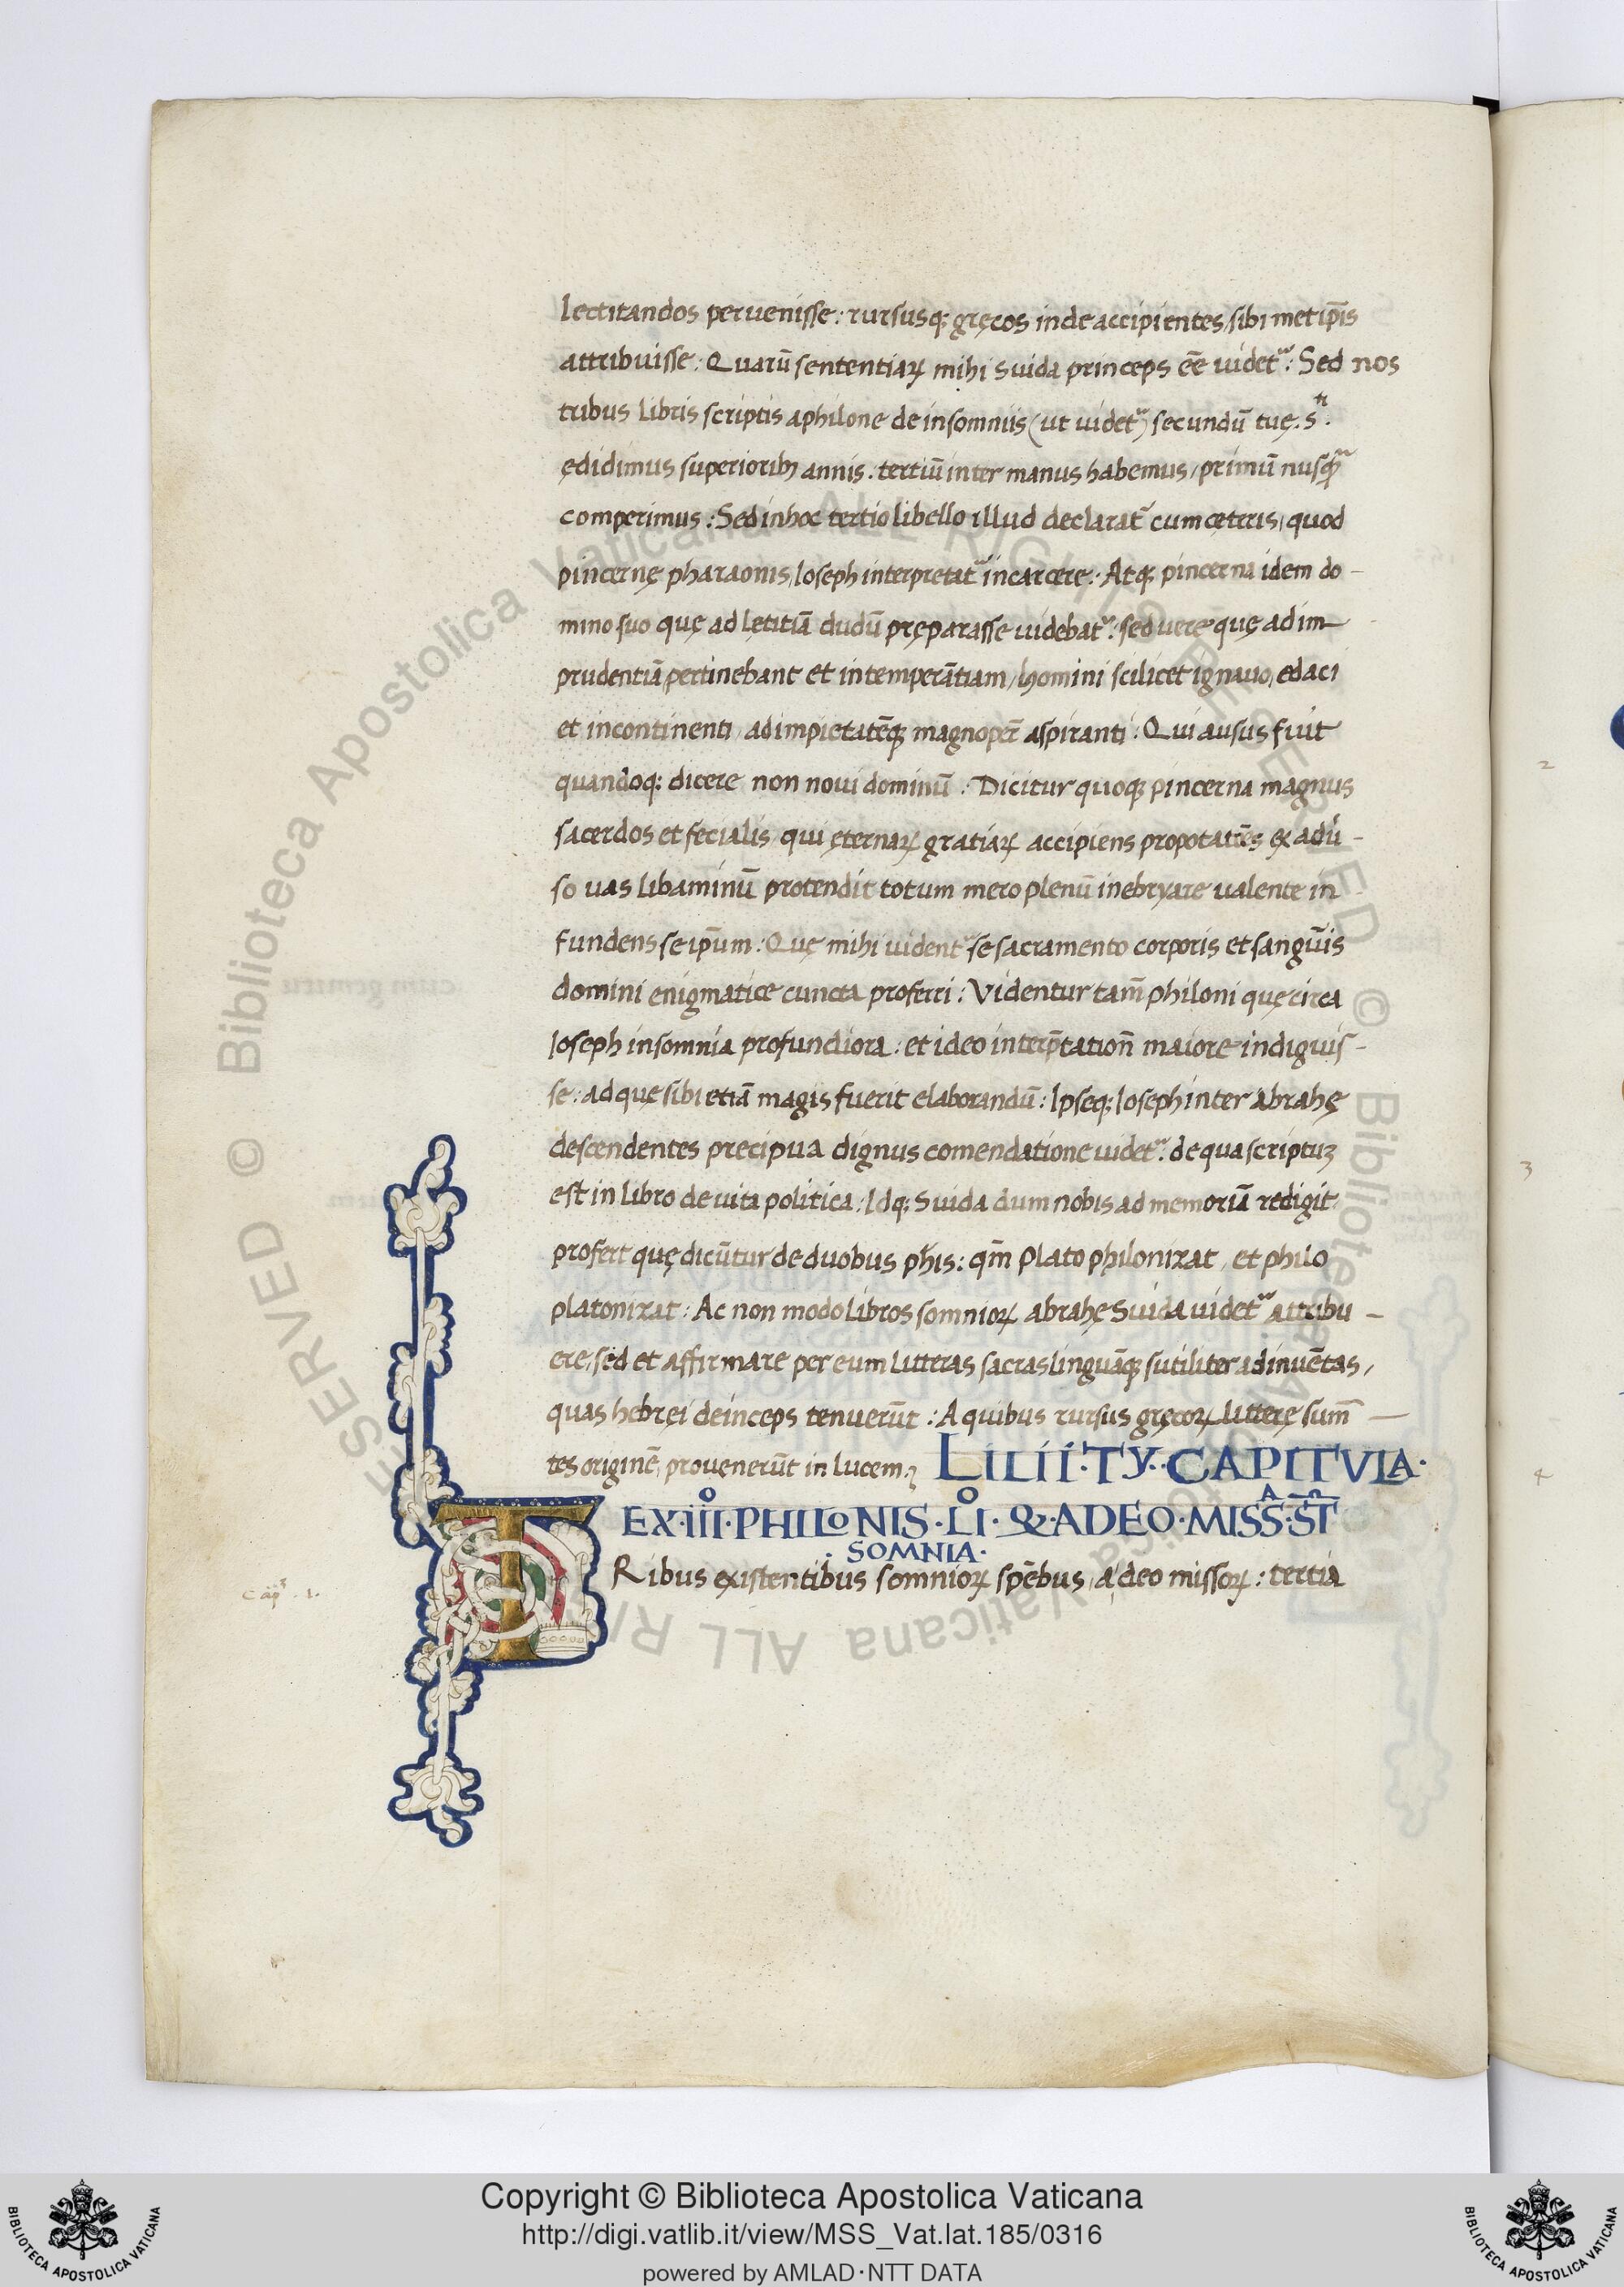 lectitandos peruenisse: rursusq; gręcos inde accipientes, sibi met ip̄is
attribuisse: Quarū sententiaꝝ mihi Suida princeps eē uidet᷑: Sed nos
tribus libris scriptis aphilone de insomniis (ut uidet᷑) secundū tuę. S.ti
ędidimus superioribꝫ annis. tertiū inter manus habemus, primū nusq̄
comperimus: Sed inhoc tertio libello illud declarat᷑ cum cęteris, quod
pincernę pharaonis, Ioseph interpretat᷑ incarcere: Atq; pincerna idem do-
mino suo quę ad lętitiā dudū pręparasse uidebat᷑: sed uere quę ad im-
prudentiā pertinebant et intemperātiam, homini scilicet ignauo, edaci
et incontinenti, adimpietatēq; magnoper̄ aspiranti: Qui ausus fuit
quandoq; dicere non noui dominū: Dicitur quoq; pincerna magnus
sacerdos et fecialis, qui ęternaꝝ gratiaꝝ accipiens propotatiōes ex adū-
so uas libaminū protendit totum mero plenū inebryare ualente in
fundens se ip̄um: Quę mihi uident᷑ se sacramento corporis et sanguīs
domini enigmatice cuncta proferri: Videntur tam̄ philoni quę circa
Ioseph insomnia profundiora: et ideo interp̄tation̄ maiore indiguis-
se: ad quę sibi etiā magis fuerit elaborandū: Ipseq; Ioseph inter Abrahę
descendentes precipua dignus comendatione uidet᷑: de qua scriptuꝫ
est in libro de uita politica: Idq; Suida dum nobis ad memoriā redigit
profert quę dicūtur de duobus ph̄is: qm̄ Plato philonizat, et philo
platonizat: Ac non modo libros somnioꝝ abrahę Suida uidet᷑ attribu-
ere, sed et affirmare per eum litteras sacras linguāq; sutiliter adinuētas,
quas hebręi deinceps tenuerūt: A quibus rursus gręcoꝝ litterę sum̄-
tes originē, prouenerūt in lucem:
LILII·TY·CAPITVLA·
EX·IIIo·PHILONIS·LIo·&·ADEO·MISSA·ST̄
·SOMNIA·
TRibus existentibus somnioꝝ spēbus, a deo missoꝝ: tertia
cap. 1.
2
3
4
Copyright © Biblioteca Apostolica Vaticana
http://digi.vatlib.it/view/MSS_Vat.lat.185/0316
powered by AMLAD·NTT DATA
BIBLIOTECA APOSTOLICA VATICANA
BIBLIOTECA APOSTOLICA VATICANA
© Biblioteca Apostolica Vaticana ALL RIGHTS RESERVED
© Biblioteca Apostolica Vaticana ALL RIGHTS RESERVED